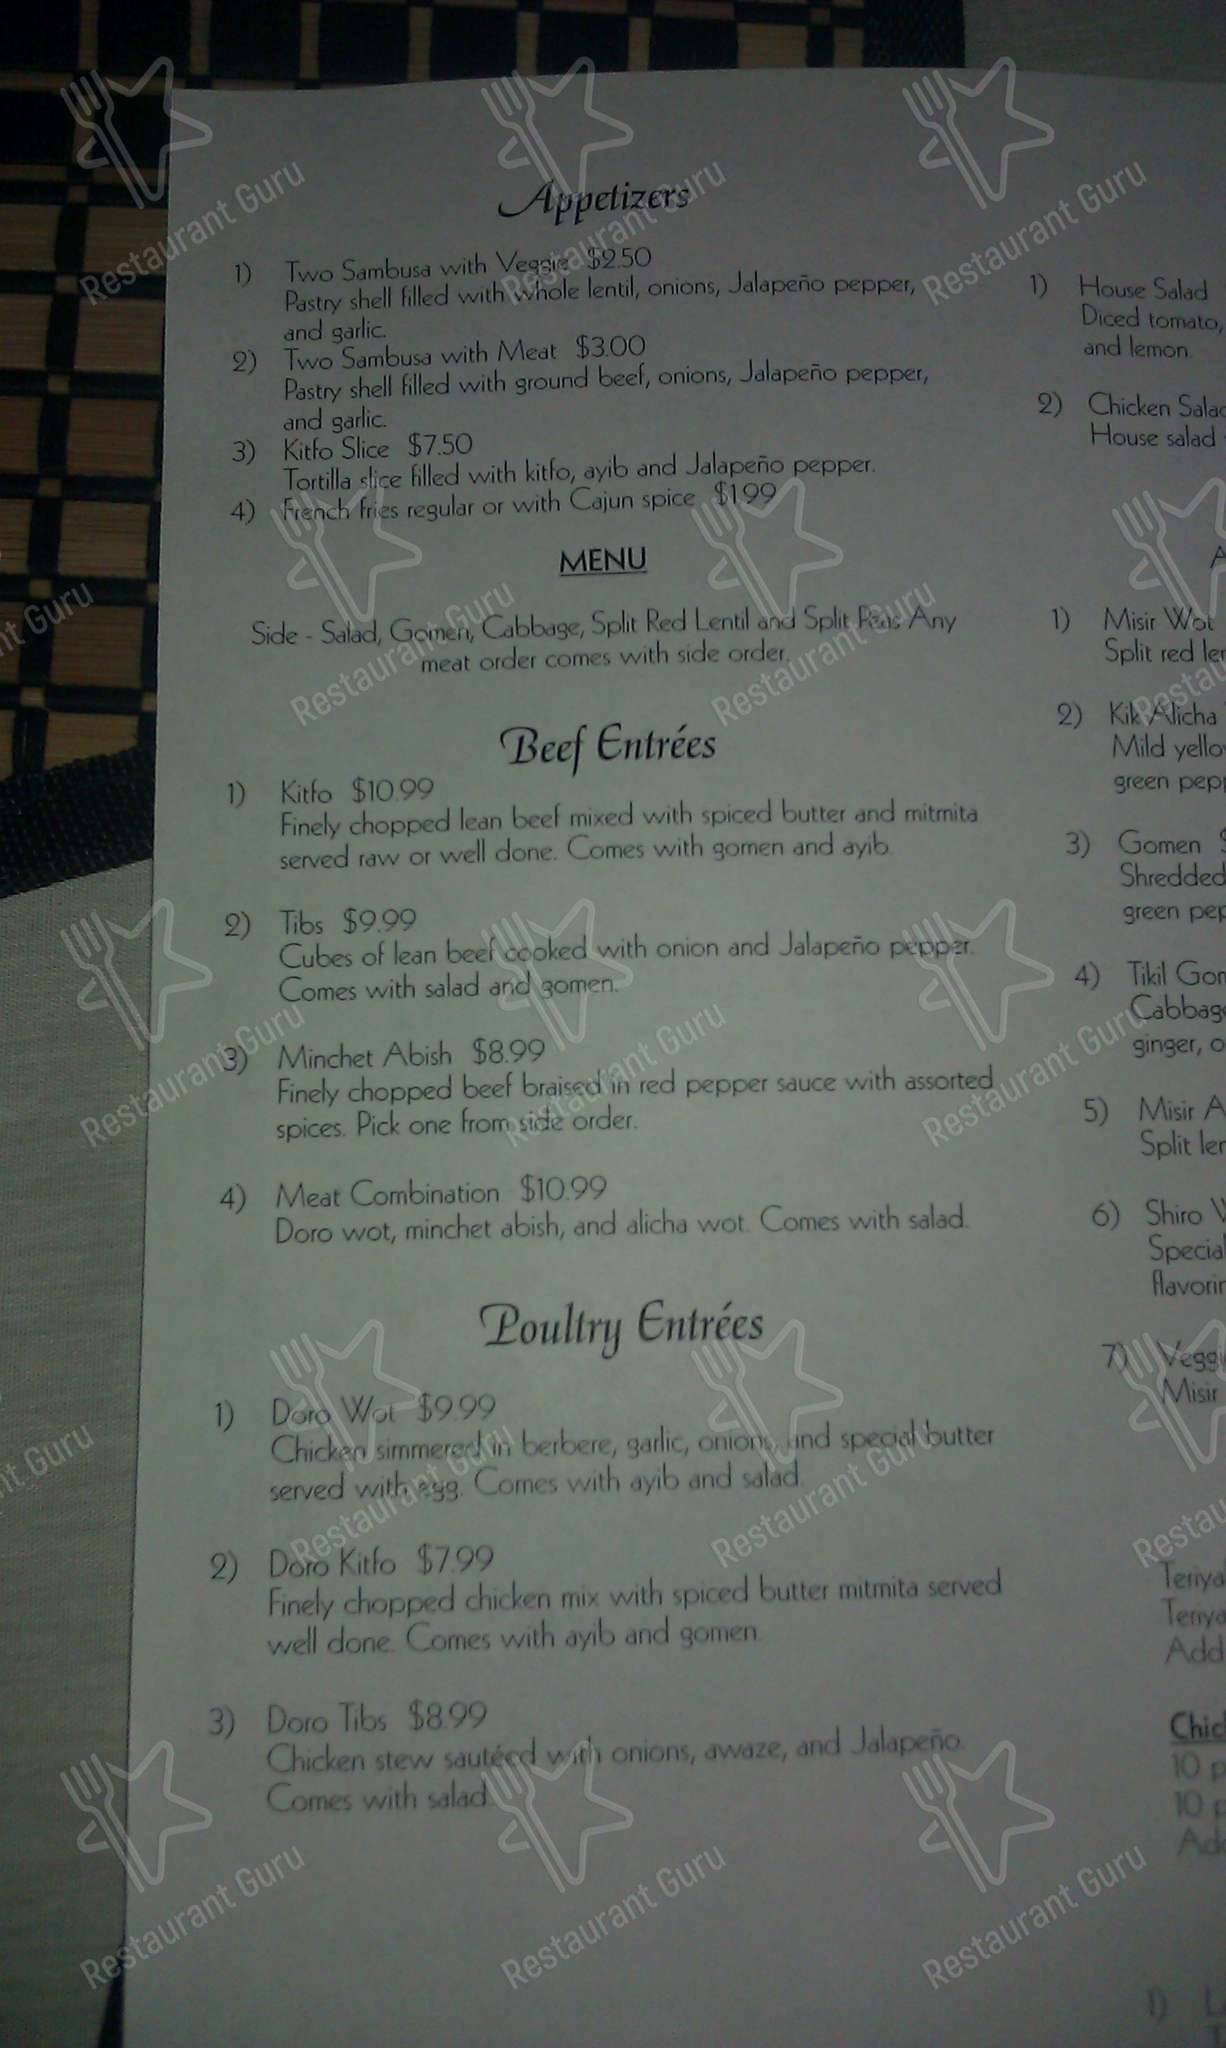 Appetizers
1) Two Sambusa with Veggie $2.50
Pastry shell filled with whole lentil, onions, Jalapeño pepper,
and garlic.
2) Two Sambusa with Meat $3.00
Pastry shell filled with ground beef, onions, Jalapeño pepper,
and garlic.
3) Kitfo Slice $7.50
Tortilla slice filled with kitfo, ayib and Jalapeño pepper.
4) French fries regular or with Cajun spice $1.99
MENU
Side - Salad, Gomen, Cabbage, Split Red Lentil and Split Peas Any
meat order comes with side order.
Beef Entrées
1) Kitfo $10.99
Finely chopped lean beef mixed with spiced butter and mitmita
served raw or well done. Comes with gomen and ayib.
2) Tibs $9.99
Cubes of lean beef cooked with onion and Jalapeño pepper.
Comes with salad and gomen.
3) Minchet Abish $8.99
Finely chopped beef braised in red pepper sauce with assorted
spices. Pick one from side order.
4) Meat Combination $10.99
Doro wot, minchet abish, and alicha wot. Comes with salad.
Poultry Entrées
1) Doro Wot $9.99
Chicken simmered in berbere, garlic, onions, and special butter
served with egg. Comes with ayib and salad.
2) Doro Kitfo $7.99
Finely chopped chicken mix with spiced butter mitmita served
well done. Comes with ayib and gomen.
3) Doro Tibs $8.99
Chicken stew sautéed with onions, awaze, and Jalapeño.
Comes with salad.
1) House Salad
Diced tomato,
and lemon.
2) Chicken Salad
House salad
1) Misir Wot
Split red
2) Kik Alicha
Mild
green
3) Gomen
Shredded
green
4) Tikil
Cabbage
ginger,
5) Misir
Split
6) Shiro
flavorin
7)
Misir
Add
10
10
1)
Restaurant Guru